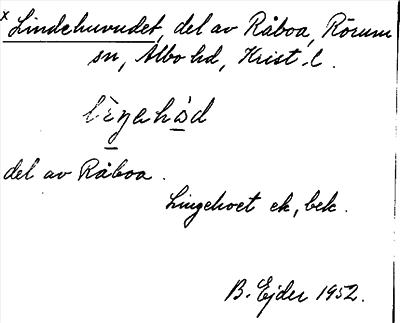 x Lindehuvudet, del av Råboa, Rörum
sn, Albo hd, Krist. l.
lìŋehùd
del av Råboa.
Lingehoet ek, bek.
B. Ejder 1952.